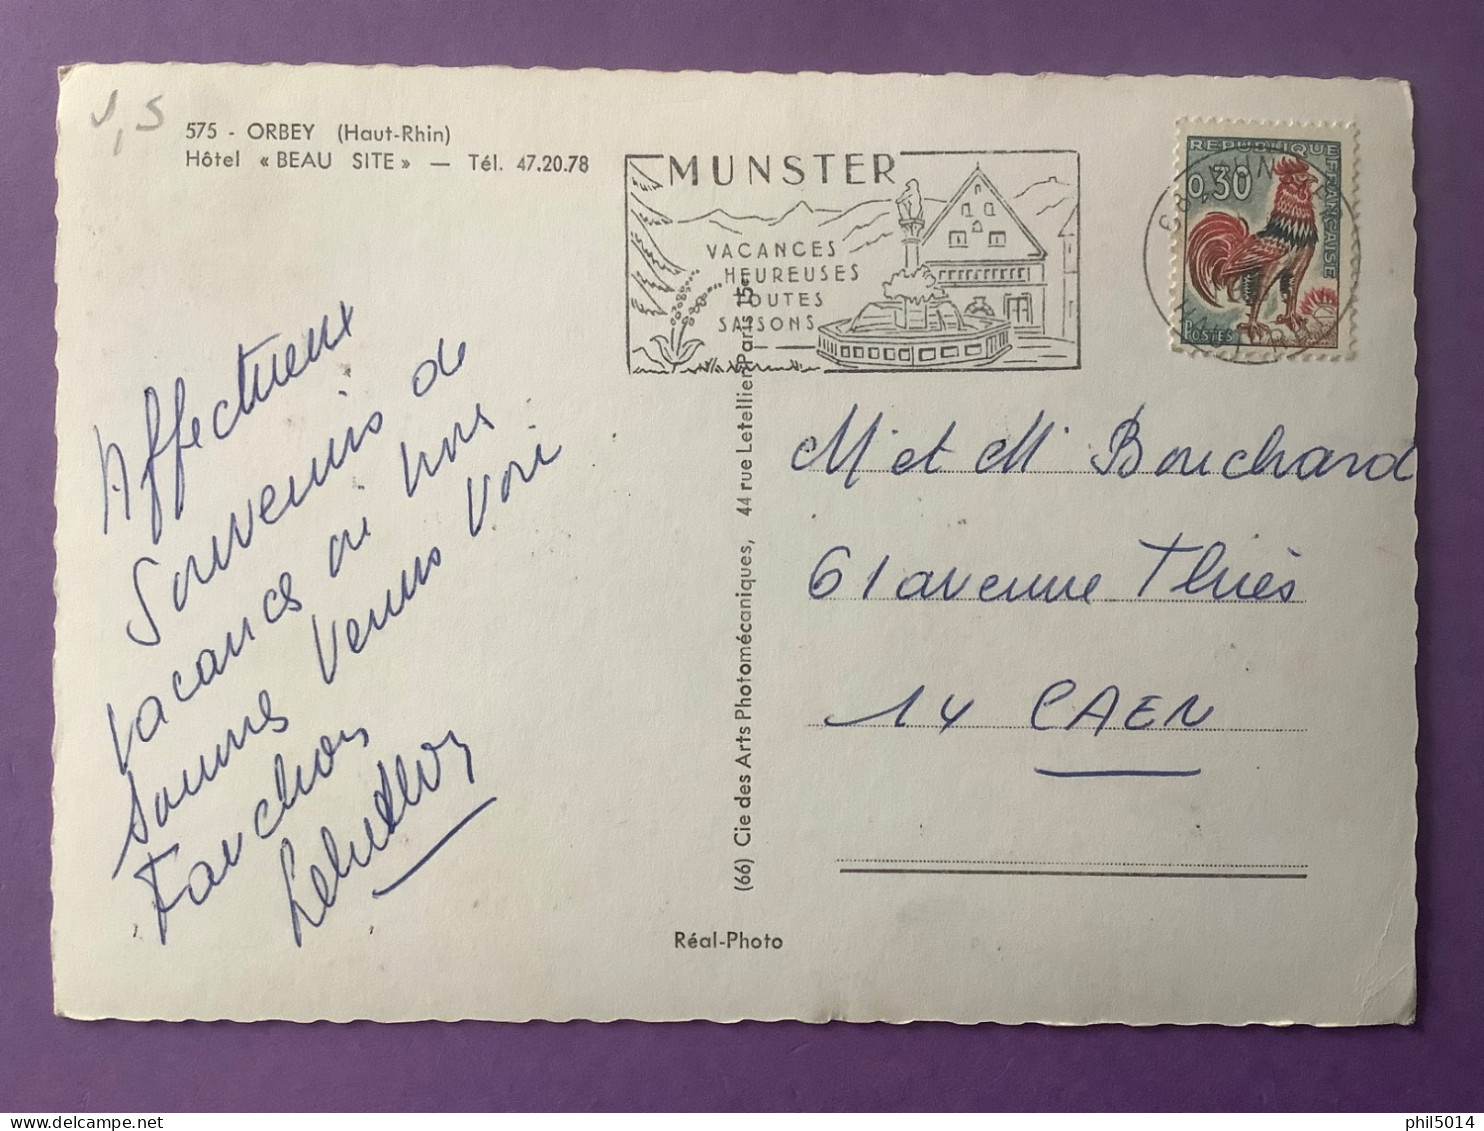 V,S
575 - ORBEY (Haut-Rhin)
Hôtel « BEAU SITE » — Tél. 47.20.78
MUNSTER
VACANCES
HEUREUSES
TOUTES
SAISONS
REPUBLIQUE
FRANÇAISE
0,30
POSTES
Affectueux
Souvenirs de
Vacances où nous
Sommes Venus Voir
Fanchon
(66) Cie des Arts Photomécaniques, 44 rue Letellier Paris 15e
Réal-Photo
M et M Bouchard
61 avenue Thiès
14 CAEN
phil5014